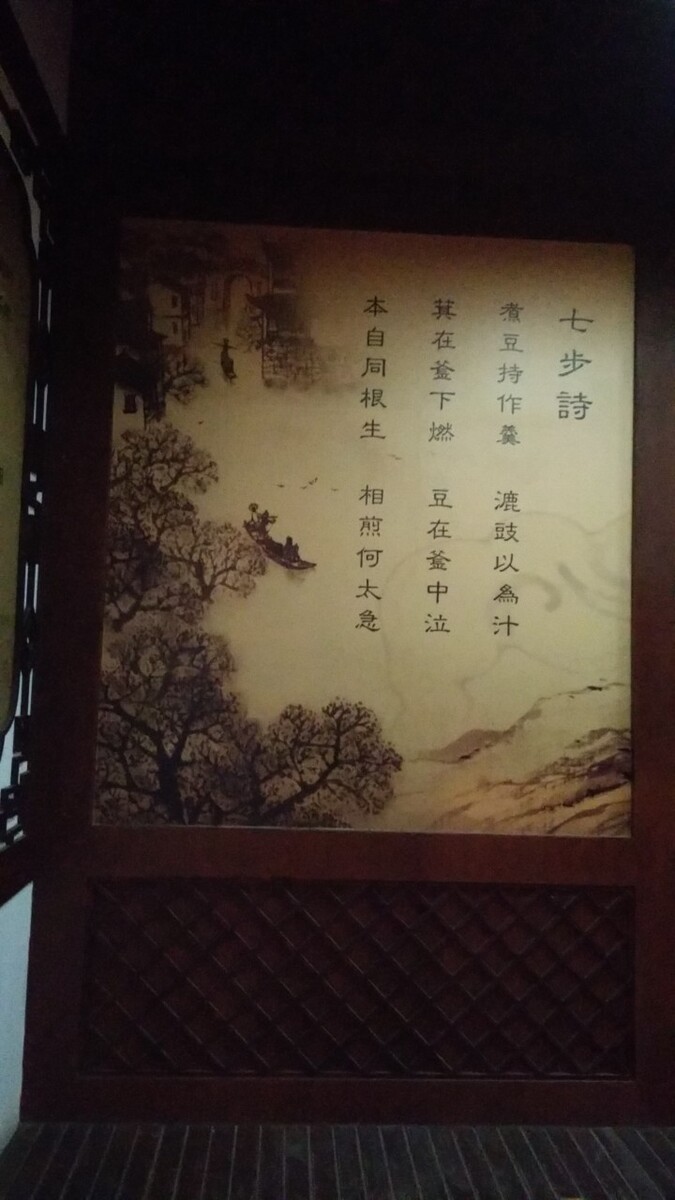 七步詩
煮豆持作羹 漉豉以為汁
萁在釜下燃 豆在釜中泣
本自同根生 相煎何太急